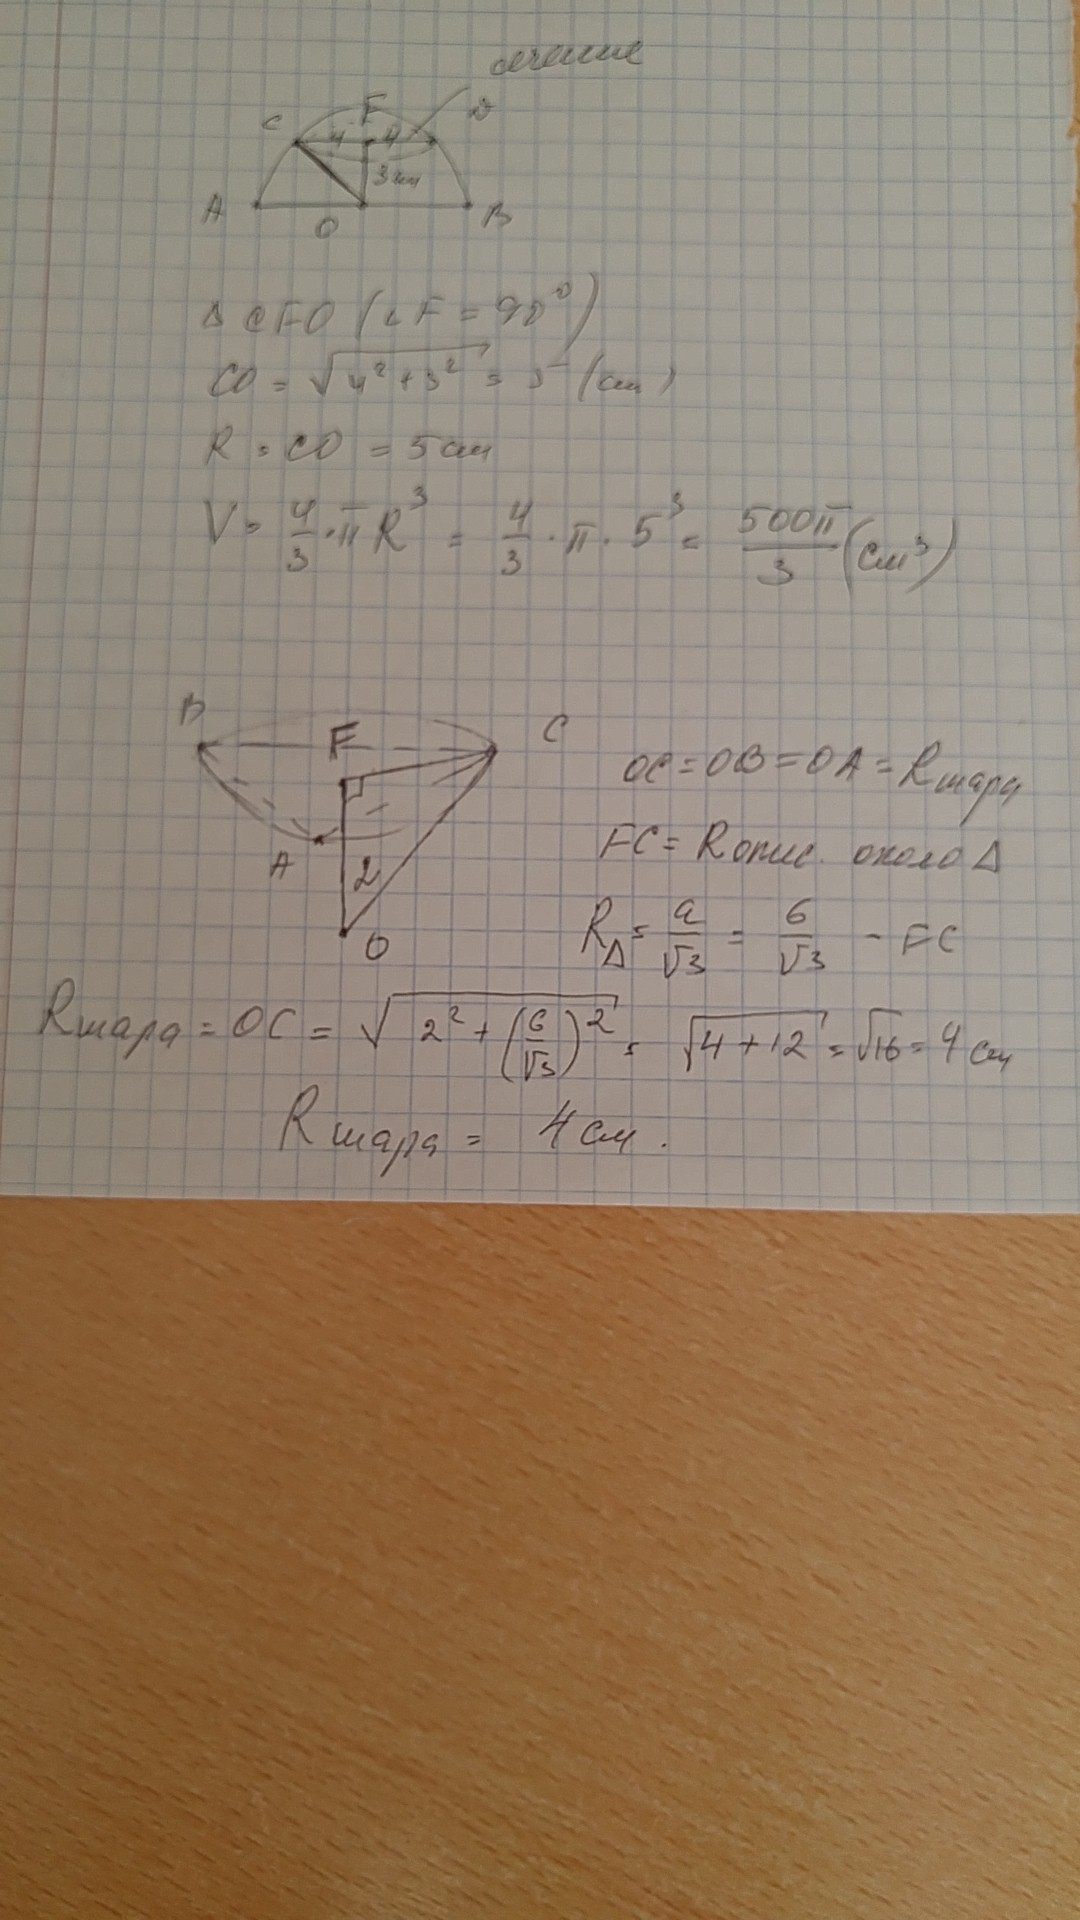 сечение
C F D
4 4
3 см
A O B
Δ CFO (∠F = 90°)
CO = √(4² + 3²) = 5 (см)
R = CO = 5 см
V = 4/3 · π R³ = 4/3 · π · 5³ = 500π/3 (см³)
B F C
A 2
O
OC = OB = OA = Rшара
FC = Rопис. около Δ
R_Δ = a/√3 = 6/√3 - FC
Rшара = OC = √(2² + (6/√3)²) = √(4 + 12) = √16 = 4 см
Rшара = 4 см.